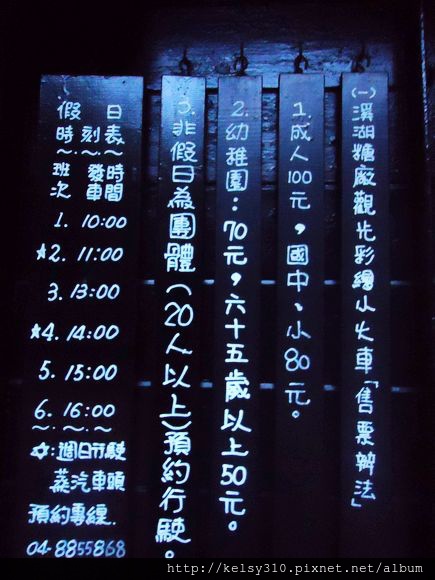 (一)溪湖糖廠觀光彩繪小火車「售票辦法」
1.成人100元，國中、小80元。
2.幼稚園：70元，六十五歲以上50元。
3.非假日為團體(20人以上)預約行駛。
假日
時刻表
班次 發車時間
1. 10:00
★2. 11:00
3. 13:00
★4. 14:00
5. 15:00
6. 16:00
✡:週日行駛
蒸汽車頭
預約專線.
04-8855868
http://kelsy310.pixnet.net/album